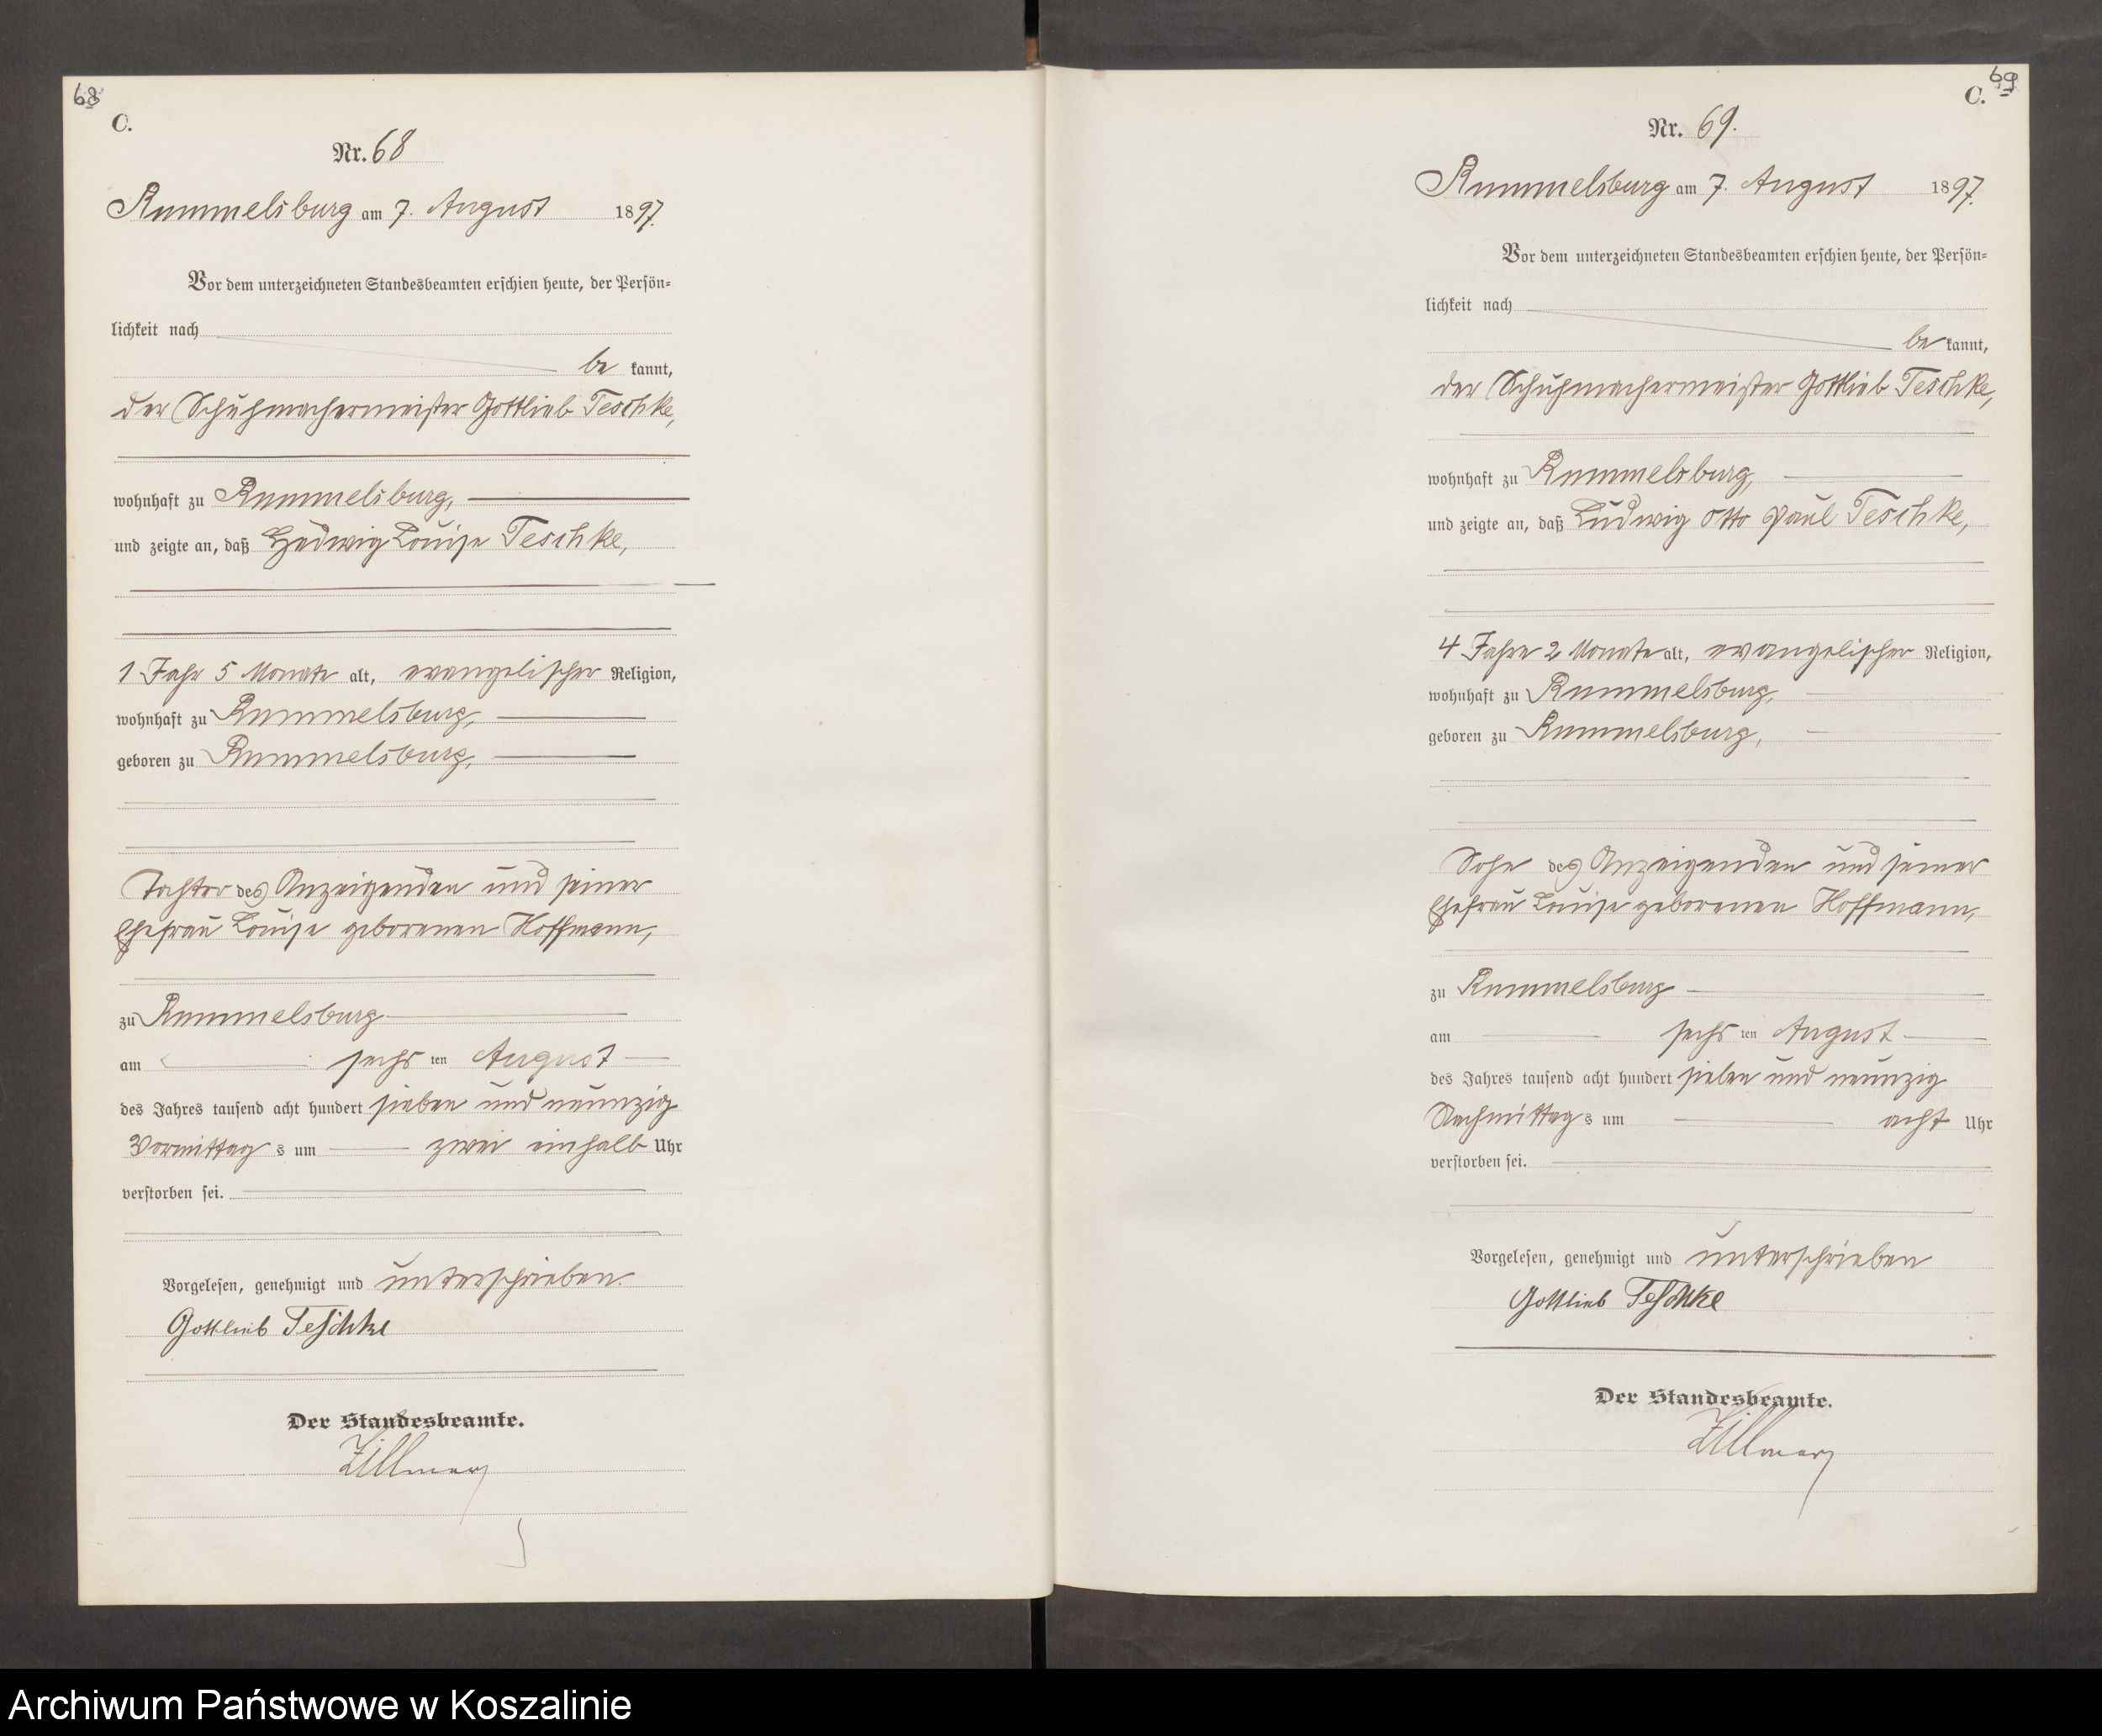 68
C.
Nr. 68
Rummelsburg am 7. August 1897.
Vor dem unterzeichneten Standesbeamten erschien heute, der Persön-
lichkeit nach
be kannt,
der Schuhmachermeister Gottlieb Teschke,
wohnhaft zu Rummelsburg,
und zeigte an, daß Hedwig Louise Teschke,
1 Jahr 5 Monate alt, evangelischer Religion,
wohnhaft zu Rummelsburg,
geboren zu Rummelsburg,
Tochter des Anzeigenden und seiner
Ehefrau Louise geborenen Hoffmann,
zu Rummelsburg
am sechs ten August
des Jahres tausend acht hundert sieben und neunzig
Vormittag s um zwei einhalb Uhr
verstorben sei.
Vorgelesen, genehmigt und unterschrieben.
Gottlieb Teschke
Der Standesbeamte.
Zillmer
69
C.
Nr. 69.
Rummelsburg am 7. August 1897.
Vor dem unterzeichneten Standesbeamten erschien heute, der Persön-
lichkeit nach
be kannt,
der Schuhmachermeister Gottlieb Teschke,
wohnhaft zu Rummelsburg,
und zeigte an, daß Ludwig Otto Paul Teschke,
4 Jahre 2 Monate alt, evangelischer Religion,
wohnhaft zu Rummelsburg,
geboren zu Rummelsburg,
Sohn des Anzeigenden und seiner
Ehefrau Louise geborenen Hoffmann,
zu Rummelsburg
am sechs ten August
des Jahres tausend acht hundert sieben und neunzig
Nachmittag s um acht Uhr
verstorben sei.
Vorgelesen, genehmigt und unterschrieben
Gottlieb Teschke
Der Standesbeamte.
Zillmer
Archiwum Państwowe w Koszalinie